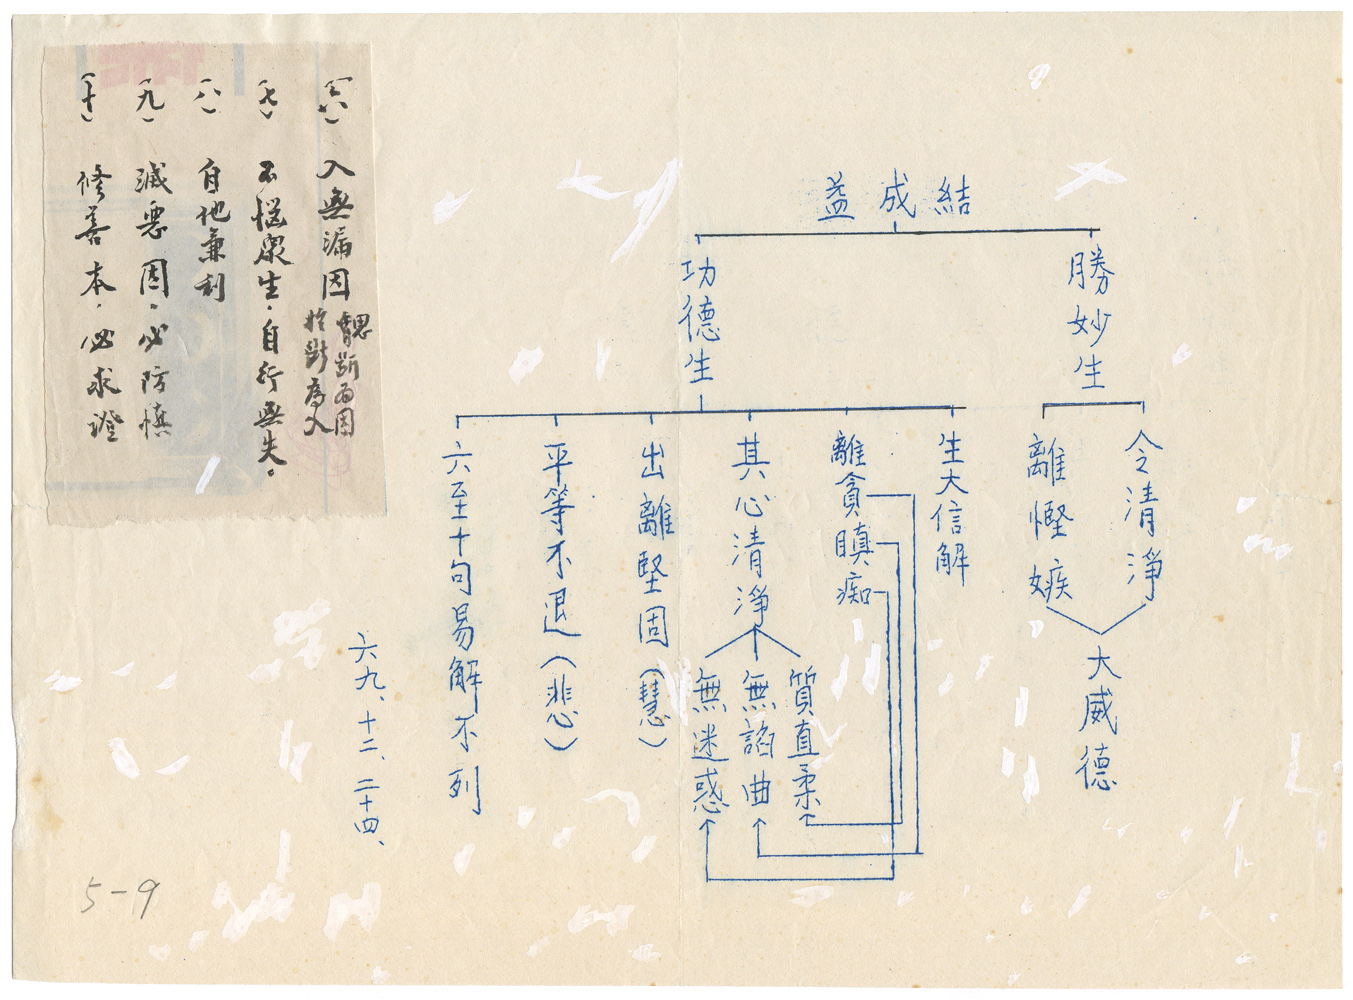 結成益
勝妙生
令清淨
離慳嫉
大威德
功德生
生大信解
離貪瞋痴
其心清淨
質直柔
無諂曲
無迷惑
出離堅固（慧）
平等不退（悲）
六至十句易解不列
六九、十二、二十四、
（六）入無漏因
（七）不惱眾生。自行無失。
（八）自他兼利
（九）滅惡因。必防慎
（十）修善本。必求證
5-9